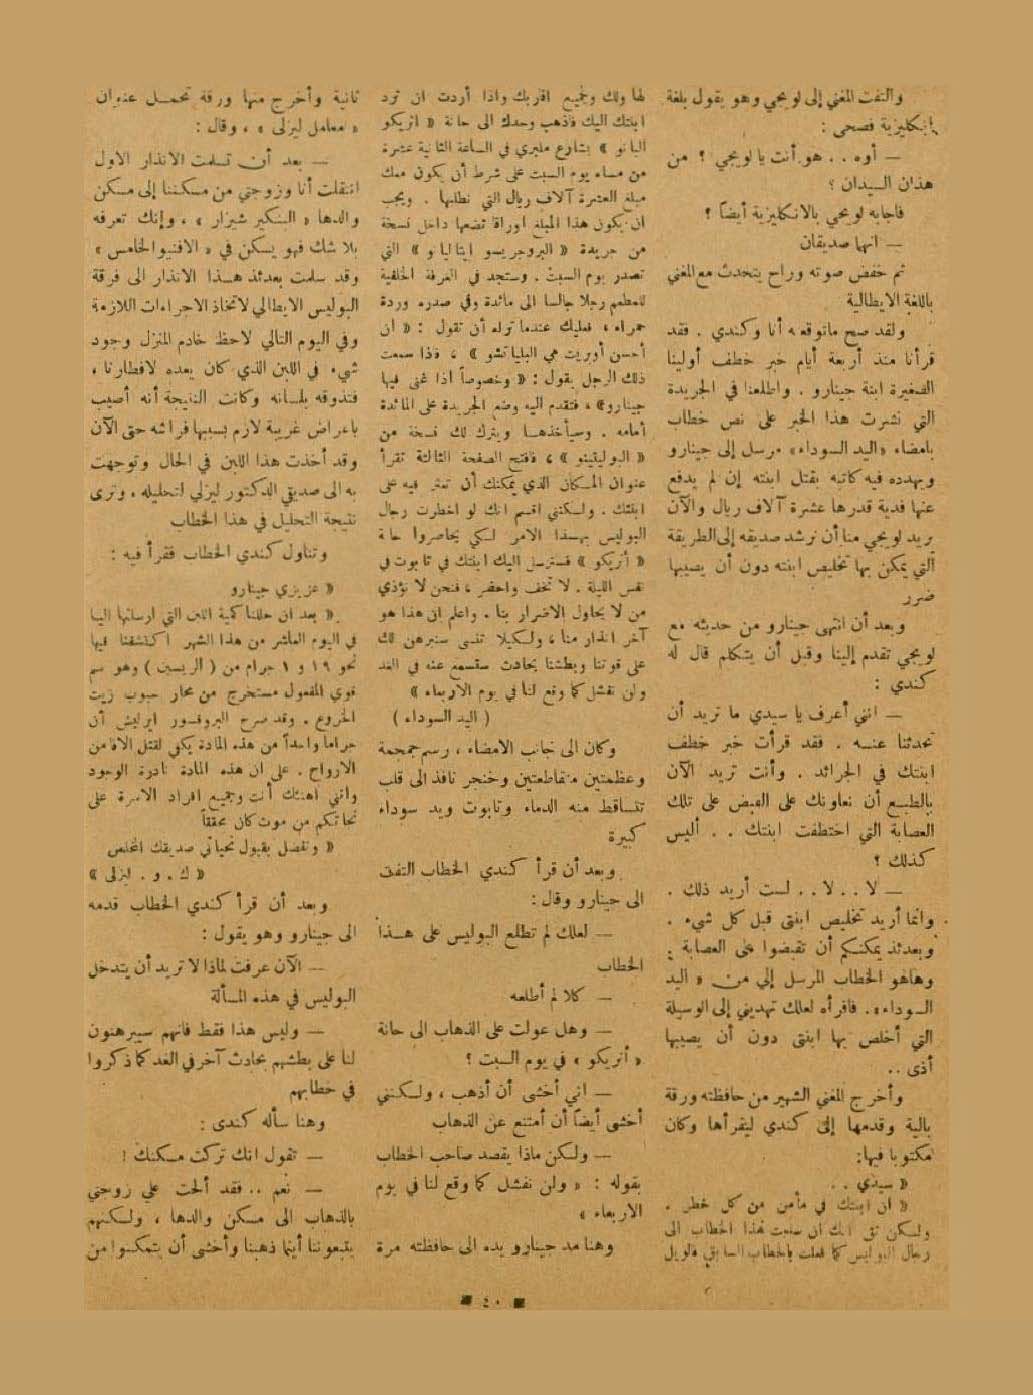 والتفت المغني إلى لويجي وهو يقول بلغة
إنكليزية فصحى :
— أوه . . هو أنت يا لويجي ؟ من
هذان السيدان ؟
فاجابه لويجي بالانكليزية أيضاً ؟
— انهما صديقان
ثم خفض صوته وراح يتحدث مع المغني
باللغة الايطالية
ولقد صح ماتوقعه أنا وكندي . فقد
قرأنا منذ أربعة أيام خبر خطف أولينا
الصغيرة ابنة جينارو . واطلعنا في الجريدة
التي نشرت هذا الخبر على نص خطاب
بامضاء «اليد السوداء» مرسل إلى جينارو
ويهدده فيه كاتبه بقتل ابنته إن لم يدفع
عنها فدية قدرها عشرة آلاف ريال والآن
يريد لويجي منا أن نرشد صديقه إلى الطريقة
التي يمكن بها تخليص ابنته دون أن يصيبها
ضرر
وبعد أن انتهى جينارو من حديثه مع
لويجي تقدم إلينا وقبل أن يتكلم قال له
كندي :
— انني أعرف يا سيدي ما تريد أن
تحدثنا عنه . فقد قرأت خبر خطف
ابنتك في الجرائد . وأنت تريد الآن
بالطبع أن نعاونك على القبض على تلك
العصابة التي اختطفت ابنتك . . أليس
كذلك ؟
— لا . . لا . . لست أريد ذلك .
وانما أريد تخليص ابنتى قبل كل شيء .
وبعدئذ يمكنكم أن تقبضوا على العصابة :
وهاهو الخطاب المرسل إلي من « اليد
السوداء». فاقرأه لعلك تهديني إلى الوسيلة
التي أخلص بها ابنتى دون أن يصيبها
أذى . .
وأخرج المغني الشهير من حافظته ورقة
بالية وقدمها إلى كندي ليقرأها وكان
مكتوبا فيها:
« سيدي . .
« ان ابنتك في مأمن من كل خطر .
ولكن ثق انك ان سلمت هذا الخطاب الى
رجال البوليس كما فعلت بالخطاب السابق فالويل
لها ولك ولجميع اقاربك واذا أردت ان ترد
ابنتك اليك فاذهب وحدك الى حانة « انريكو
البانو » بشارع ملبري في الساعة الثانية عشرة
من مساء يوم السبت على شرط أن يكون معك
مبلغ العشرة آلاف ريال التي نطلبها . ويجب
ان يكون هذا المبلغ اوراقا تضعها داخل نسخة
من جريدة « البروجريسو ايتاليانو » التي
تصدر يوم السبت . وستجد في الغرفة الخلفية
للمطعم رجلا جالسا الى مائدة وفي صدره وردة
حمراء ، فعليك عندما تراه أن تقول : « ان
أحسن أوبريت هي البلياتشو » ، فاذا سمعت
ذلك الرجل يقول : « وخصوصاً اذا غنى فيها
جينارو» ، فتقدم اليه وضع الجريدة على المائدة
أمامه . وسيأخذها ويترك لك نسخة من
« البوليتينو » ، فافتح الصفحة الثالثة تقرأ
عنوان المكان الذي يمكنك أن تعثر فيه على
ابنتك . ولكنني اقسم انك لو اخطرت رجال
البوليس بهذا الامر لكي يحاصروا حانة
« أنريكو » فسنرسل اليك ابنتك في تابوت في
نفس الليلة . لا تخف واحضر ، فنحن لا نؤذي
من لا يحاول الاضرار بنا . واعلم ان هذا هو
آخر انذار منا ، ولكيلا تنسى سنبرهن لك
على قوتنا وبطشنا بحادث ستسمع عنه في الغد
ولن نفشل كما وقع لنا في يوم الاربعاء »
( اليد السوداء )
وكان الى جانب الامضاء ، رسم جمجمة
وعظمتين متقاطعتين وخنجر نافذ الى قلب
تتساقط منه الدماء وتابوت ويد سوداء
كبيرة
وبعد أن قرأ كندي الخطاب التفت
الى جينارو وقال :
— لعلك لم تطلع البوليس على هذا
الخطاب
— كلا لم أطلعه
— وهل عولت على الذهاب الى حانة
« أنريكو » في يوم السبت ؟
— اني أخشى أن أذهب ، ولكنني
أخشى أيضاً أن أمتنع عن الذهاب
— ولكن ماذا يقصد صاحب الخطاب
بقوله : « ولن نفشل كما وقع لنا في يوم
الاربعاء »
وهنا مد جينارو يده الى حافظته مرة
ثانية وأخرج منها ورقة تحمل عنوان
« معامل ليزلى » ، وقال :
— بعد أن تسلمت الانذار الاول
انتقلت أنا وزوجتي من مسكننا إلى مسكن
والدها « البنكير شيزار » ، وإنك تعرفه
بلا شك فهو يسكن في « الافنيو الخامس »
وقد سلمت بعدئذ هذا الانذار الى فرقة
البوليس الايطالي لاتخاذ الاجراءات اللازمة
وفي اليوم التالي لاحظ خادم المنزل وجود
شيء في اللبن الذي كان يعده لافطارنا ،
فتذوقه بلسانه وكانت النتيجة أنه أصيب
باعراض غريبة لازم بسببها فراشه حتى الآن
وقد أخذت هذا اللبن في الحال وتوجهت
به الى صديقي الدكتور ليزلي لتحليله . وترى
نتيجة التحليل في هذا الخطاب
وتناول كندي الخطاب فقرأ فيه :
« عزيزي جينارو
« بعد ان حللنا كمية اللبن التي ارسلتها الينا
في اليوم العاشر من هذا الشهر اكتشفنا فيها
نحو ١٩ و ١ جرام من ( الريسين ) وهو سم
قوي المفعول مستخرج من محار حبوب زيت
الخروع . وقد صرح البروفسور ايرليش أن
جراما واحداً من هذه المادة يكفي لقتل الآف من
الارواح . على ان هذه المادة نادرة الوجود
وانني اهنئك أنت وجميع افراد الاسرة على
نجاتكم من موت كان محققاً
« وتفضل بقبول تحياتي صديقك المخلص
« ك . و . ليزلى »
وبعد أن قرأ كندي الخطاب قدمه
الى جينارو وهو يقول :
— الآن عرفت لماذا لا تريد أن يتدخل
البوليس في هذه المسألة
— وليس هذا فقط فانهم سيبرهنون
لنا على بطشهم بحادث آخر في الغد كما ذكروا
في خطابهم
وهنا سأله كندى :
— تقول انك تركت مسكنك !
— نعم .. فقد ألحت علي زوجتي
بالذهاب الى مسكن والدها ، ولكنهم
يتبعوننا أينما ذهبنا وأخشى أن يتمكنوا من
٤٠